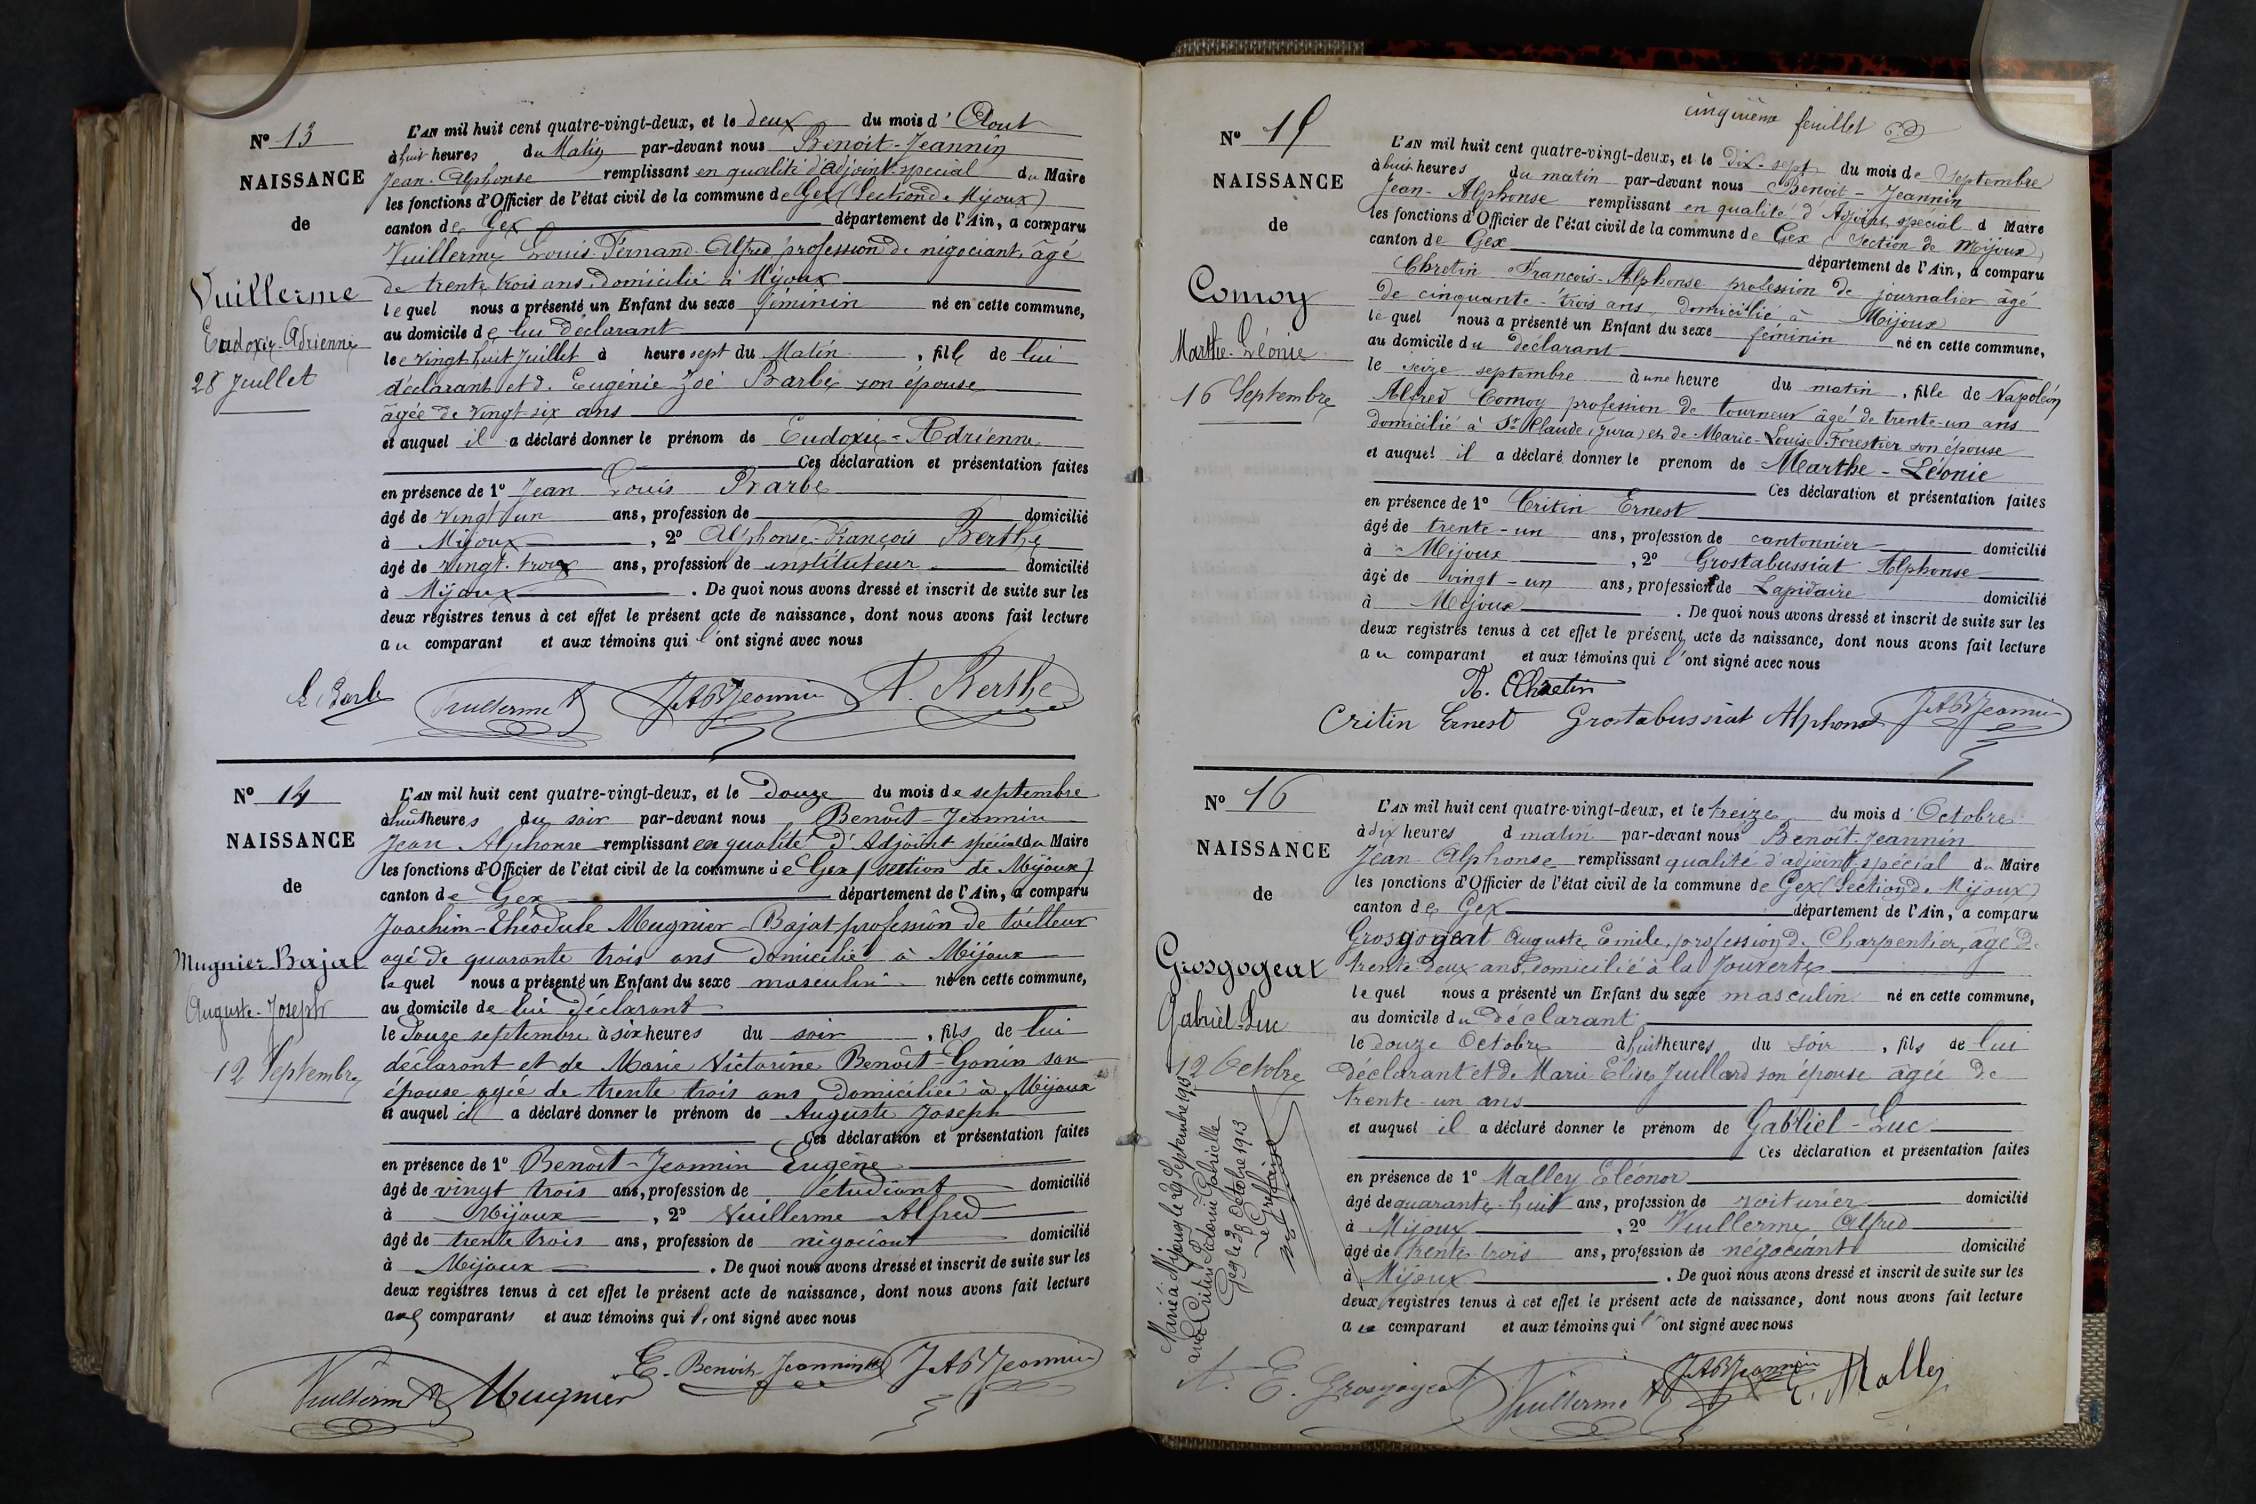 N° 13
NAISSANCE
de
Vuillerme
Eudoxie-Adrienne
28 Juillet
L'AN mil huit cent quatre-vingt-deux, et le deux du mois d' Aout
à huit heures du Matin par-devant nous Benoit-Jeannin
Jean-Alphonse remplissant en qualité d'adjoint spécial du Maire
les fonctions d'Officier de l'état civil de la commune de Gex (Section de Mijoux)
canton de Gex département de l'Ain, a comparu
Vuillerme Louis-Fernand-Alfred profession de négociant, âgé
de trente trois ans, domicilié à Mijoux
lequel nous a présenté un Enfant du sexe féminin né en cette commune,
au domicile de lui déclarant
le vingt huit Juillet à heure sept du Matin, fille de lui
déclarant et d. Eugénie Zoé Barbe son épouse
âgée de vingt-six ans
et auquel il a déclaré donner le prénom de Eudoxie-Adrienne
Ces déclaration et présentation faites
en présence de 1° Jean Louis Barbe
âgé de vingt un ans, profession de domicilié
à Mijoux, 2° Alphonse-François Berthe
âgé de vingt-trois ans, profession de instituteur domicilié
à Mijoux. De quoi nous avons dressé et inscrit de suite sur les
deux registres tenus à cet effet le présent acte de naissance, dont nous avons fait lecture
au comparant et aux témoins qui l'ont signé avec nous
L Barbe Vuillerme A JABJeannin A. Berthe
N° 14
NAISSANCE
de
Mugnier-Bajat
Auguste-Joseph
12 Septembre
L'AN mil huit cent quatre-vingt-deux, et le douze du mois de septembre
à huit heures du soir par-devant nous Benoît-Jeannin
Jean Alphonse remplissant en qualité d'Adjoint spécial du Maire
les fonctions d'Officier de l'état civil de la commune de Gex (section de Mijoux)
canton de Gex département de l'Ain, a comparu
Joachim-Théodule Mugnier-Bajat profession de tailleur
agé de quarante trois ans domicilié à Mijoux
lequel nous a présenté un Enfant du sexe masculin né en cette commune,
au domicile de lui déclarant
le douze septembre à six heures du soir, fils de lui
déclarant et de Marie Victorine Benoît-Gonin son
épouse agée de trente trois ans domiciliée à Mijoux
et auquel il a déclaré donner le prénom de Auguste Joseph
Ces déclaration et présentation faites
en présence de 1° Benoît-Jeannin Eugène
âgé de vingt trois ans, profession de étudiant domicilié
à Mijoux, 2° Vuillerme Alfred
âgé de trente trois ans, profession de négociant domicilié
à Mijoux. De quoi nous avons dressé et inscrit de suite sur les
deux registres tenus à cet effet le présent acte de naissance, dont nous avons fait lecture
aux comparants et aux témoins qui l'ont signé avec nous
Vuillerme A Mugnier E. Benoit-Jeannin JABJeannin
cinquième feuillet
N° 15
NAISSANCE
de
Comoy
Marthe-Léonie
16 Septembre
L'AN mil huit cent quatre-vingt-deux, et le dix-sept du mois de Septembre
à huit heures du matin par-devant nous Benoit-Jeannin
Jean-Alphonse remplissant en qualité d'Adjoint spécial d Maire
les fonctions d'Officier de l'état civil de la commune de Gex (Section de Mijoux)
canton de Gex département de l'Ain, a comparu
Chretin François-Alphonse profession de journalier âgé
de cinquante-trois ans, domicilié à Mijoux
lequel nous a présenté un Enfant du sexe féminin né en cette commune,
au domicile du déclarant
le seize septembre à une heure du matin, fille de Napoléon
Alfred Comoy profession de tourneur âgé de trente-un ans
domicilié à St Claude (Jura) et de Marie-Louise Forestier son épouse
et auquel il a déclaré donner le prenom de Marthe-Léonie
Ces déclaration et présentation faites
en présence de 1° Critin Ernest
âgé de trente-un ans, profession de cantonnier domicilié
à Mijoux, 2° Grostabussiat Alphonse
âgé de vingt-un ans, profession de Lapidaire domicilié
à Mijoux. De quoi nous avons dressé et inscrit de suite sur les
deux registres tenus à cet effet le présent acte de naissance, dont nous avons fait lecture
au comparant et aux témoins qui l'ont signé avec nous
A. Chretin
Critin Ernest Grostabussiat Alphonse JABJeannin
N° 16
NAISSANCE
de
Grosgogeat
Gabriel-Luc
12 Octobre
Marié à Mijoux le 20 Septembre 1913
avec Critin Victorine Gabrielle
Gex le 30 Octobre 1913
Le Greffier
L'AN mil huit cent quatre-vingt-deux, et le treize du mois d'Octobre
à dix heures d matin par-devant nous Benoît-Jeannin
Jean-Alphonse remplissant qualité d'adjoint spécial du Maire
les fonctions d'Officier de l'état civil de la commune de Gex (Section de Mijoux)
canton de Gex département de l'Ain, a comparu
Grosgogeat Auguste Emile, profession d. Charpentier, âgé de
trente deux ans, domicilié à la Jouverte
lequel nous a présenté un Enfant du sexe masculin né en cette commune,
au domicile du déclarant
le douze Octobre à huit heures du soir, fils de lui
déclarant et de Marie Elise Juillard son épouse âgée de
trente-un ans
et auquel il a déclaré donner le prénom de Gabriel-Luc
Ces déclaration et présentation faites
en présence de 1° Malley Eléonor
âgé de quarante-huit ans, profession de voiturier domicilié
à Mijoux, 2° Vuillerme Alfred
âgé de trente-trois ans, profession de négociant domicilié
à Mijoux. De quoi nous avons dressé et inscrit de suite sur les
deux registres tenus à cet effet le présent acte de naissance, dont nous avons fait lecture
au comparant et aux témoins qui l'ont signé avec nous
A. E. Grosgogeat Vuillerme A JABJeannin E. Malley